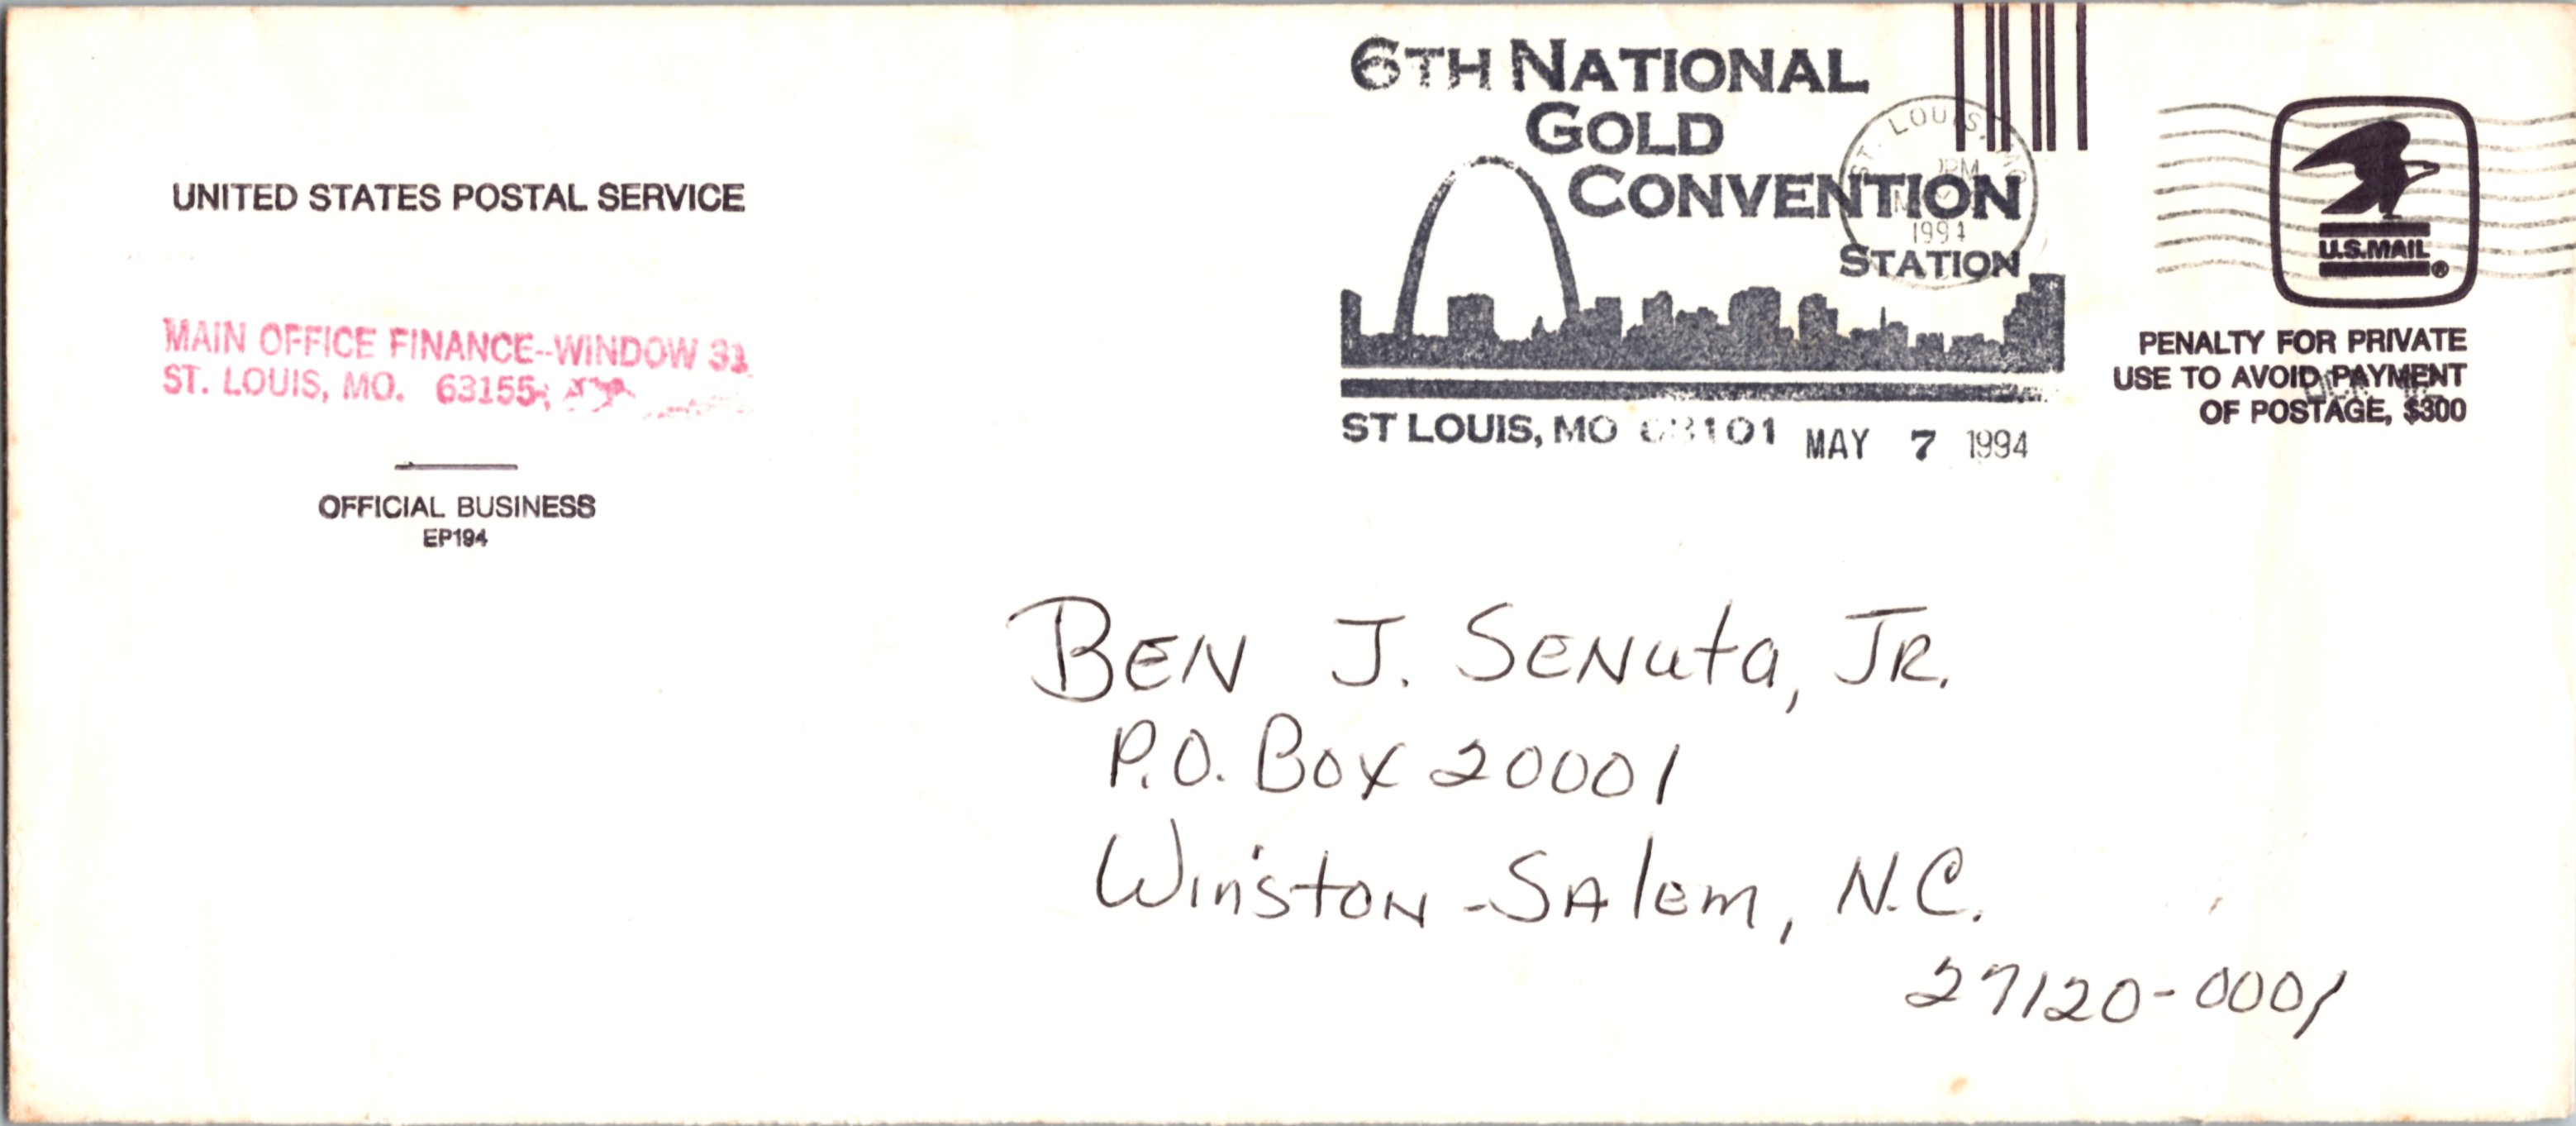 UNITED STATES POSTAL SERVICE
MAIN OFFICE FINANCE--WINDOW 31
ST. LOUIS, MO. 63155
OFFICIAL BUSINESS
EP194
6TH NATIONAL
GOLD
CONVENTION
STATION
ST LOUIS, MO 63101 MAY 7 1994
ST. LOUIS, MO
PM
1994
U.S.MAIL®
PENALTY FOR PRIVATE
USE TO AVOID PAYMENT
OF POSTAGE, $300
BEN J. SENuta, JR.
P.O. Box 20001
Winston-Salem, N.C.
27120-0001